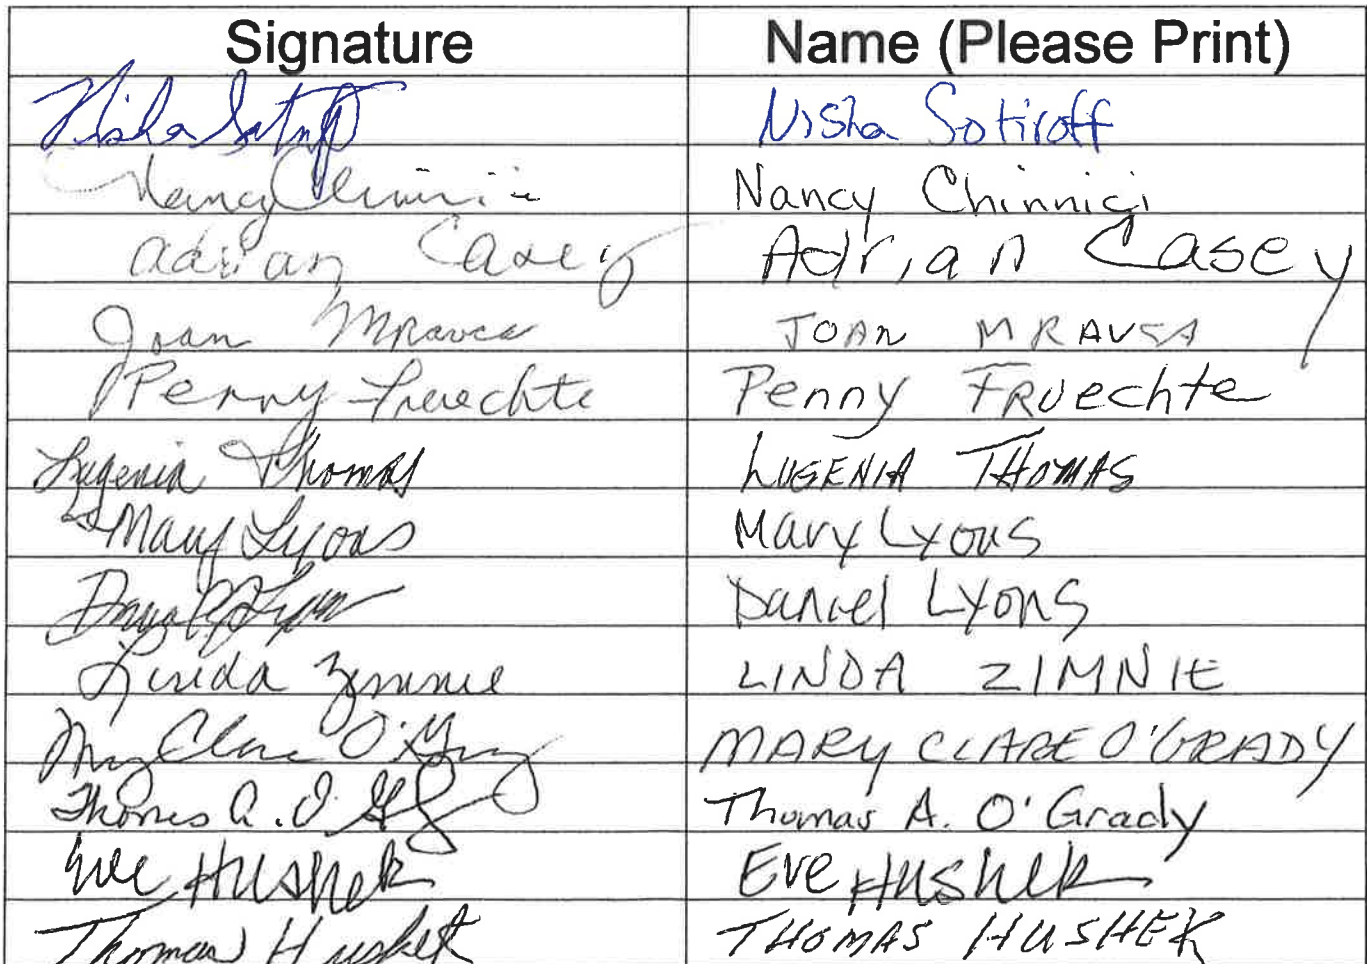 Signature Name (Please Print)
Nisha Sotiroff Nisha Sotiroff
Nancy Chinnici Nancy Chinnici
Adrian Casey Adrian Casey
Joan Mravca JOAN MRAVCA
Penny Fruechte Penny FRuechte
Lugenia Thomas LUGENIA THOMAS
Mary Lyons Mary Lyons
Daniel Lyons Daniel Lyons
Linda Zimnie LINDA ZIMNIE
Mary Clare O'Grady MARY CLARE O'GRADY
Thomas A. O'Grady Thomas A. O'Grady
Eve Hushek Eve HusHek
Thomas Hushek THOMAS HUSHEK